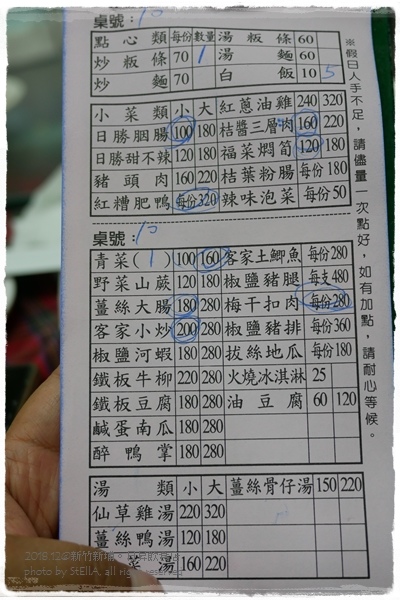 桌號: 10
點心類 每份 數量 湯粄條 60
炒粄條 70 1 湯麵 60
炒麵 70 白飯 10 5
小菜類 小 大 紅蔥油雞 240 320
日勝胭腸 100 180 桔醬三層肉 160 220
日勝甜不辣 120 180 福菜燜筍 120 180
豬頭肉 160 220 桔葉粉腸 每份 180
紅糟肥鴨 每份 320 辣味泡菜 每份 50
※假日人手不足，請儘量一次點好，如有加點，請耐心等候。
桌號: 10
青菜(1) 100 160 客家土鯽魚 每份 280
野菜山蕨 120 180 椒鹽豬腿 每支 480
薑絲大腸 180 280 梅干扣肉 每份 280
客家小炒 200 280 椒鹽豬排 每份 360
椒鹽河蝦 180 280 拔絲地瓜 每份 180
鐵板牛柳 220 280 火燒冰淇淋 25
鐵板豆腐 180 280 油豆腐 60 120
鹹蛋南瓜 180 280
醉鴨掌 180 280
湯類 小 大 薑絲骨仔湯 150 220
仙草雞湯 220 320
薑絲鴨湯 120 180
菜湯 160 220
photo by StEllA, all